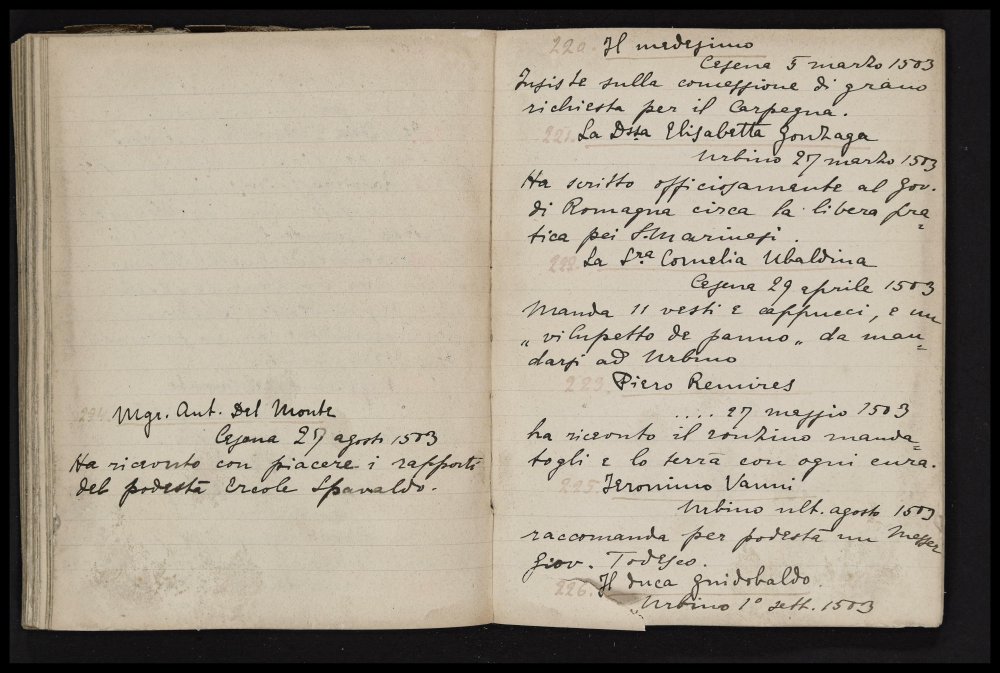 224. Mgr. Ant. Del Monte
Cesena 27 agosto 1503
Ha ricevuto con piacere i rapporti
del podestà Ercole Spavaldo.
220. Il medesimo
Cesena 5 marzo 1503
Insiste sulla concessione di grano
richiesta per il Carpegna.
221. La Dssa Elisabetta Gonzaga
Urbino 27 marzo 1503
Ha scritto officiosamente al Gov.
di Romagna circa la libera pra=
tica pei S. Marinesi.
222. La Sra Cornelia Ubaldina
Cesena 29 aprile 1503
Manda 11 vesti e cappucci, e un
„ vilupetto de panno „ da man=
darsi ad Urbino
223. Piero Remires
.... 27 maggio 1503
ha ricevuto il ronzino manda=
togli e lo terrà con ogni cura.
225. Jeronimo Vanni
Urbino ult. agosto 1503
raccomanda per podestà un Messer
Giov. Todesco.
226. Il duca Guidobaldo.
Urbino 1° sett. 1503